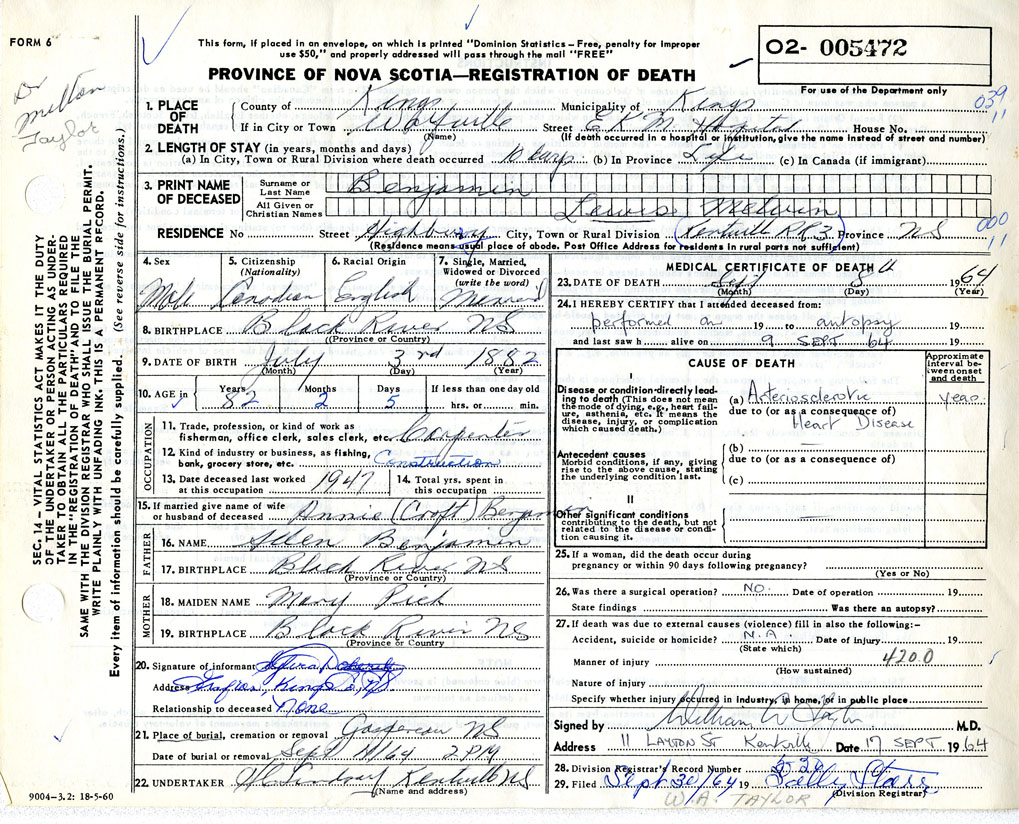 FORM 6
This form, if placed in an envelope, on which is printed "Dominion Statistics – Free, penalty for improper
use $50," and properly addressed will pass through the mail "FREE"
02- 005472
PROVINCE OF NOVA SCOTIA—REGISTRATION OF DEATH
For use of the Department only
Dr
Milton
Taylor
039
11
1. PLACE OF DEATH
County of Kings Municipality of Kings
If in City or Town Wolfville Street E K M Hospital House No.
(Name) (If death occurred in a hospital or institution, give the name instead of street and number)
2. LENGTH OF STAY (in years, months and days)
(a) In City, Town or Rural Division where death occurred 10 days (b) In Province Life (c) In Canada (if immigrant)
3. PRINT NAME OF DECEASED
Surname or Last Name Benjamin
All Given or Christian Names Lewis Melvin
000
11
RESIDENCE No Street Highbury City, Town or Rural Division Kentville RR3 Province NS
(Residence means usual place of abode. Post Office Address for residents in rural parts not sufficient)
SEC. 14 – VITAL STATISTICS ACT MAKES IT THE DUTY
OF THE UNDERTAKER OR PERSON ACTING AS UNDER-
TAKER TO OBTAIN ALL THE PARTICULARS REQUIRED
IN THE "REGISTRATION OF DEATH" AND TO FILE THE
SAME WITH THE DIVISION REGISTRAR WHO SHALL ISSUE THE BURIAL PERMIT.
WRITE PLAINLY WITH UNFADING INK. THIS IS A PERMANENT RECORD.
Every item of information should be carefully supplied. (See reverse side for instructions.)
4. Sex Male
5. Citizenship (Nationality) Canadian
6. Racial Origin English
7. Single, Married, Widowed or Divorced (write the word) Married
8. BIRTHPLACE Black River NS
(Province or Country)
9. DATE OF BIRTH July 3rd 1882
(Month) (Day) (Year)
10. AGE in Years 82 Months 2 Days 5 If less than one day old hrs. or min.
OCCUPATION
11. Trade, profession, or kind of work as
fisherman, office clerk, sales clerk, etc. Carpenter
12. Kind of industry or business, as fishing,
bank, grocery store, etc. Construction
13. Date deceased last worked at this occupation 1947
14. Total yrs. spent in this occupation
15. If married give name of wife or husband of deceased Annie (Croft) Benjamin
FATHER
16. NAME Allen Benjamin
17. BIRTHPLACE Black River NS
(Province or Country)
MOTHER
18. MAIDEN NAME Mary Pick
19. BIRTHPLACE Black River NS
(Province or Country)
20. Signature of informant
Address Grafton, Kings Co, N.S.
Relationship to deceased None
21. Place of burial, cremation or removal Gaspereau NS
Date of burial or removal Sept 11/64 2 PM
22. UNDERTAKER Kentville NS
(Name and address)
9004–3.2: 18-5-60
MEDICAL CERTIFICATE OF DEATH
23. DATE OF DEATH Sept 8 1964
(Month) (Day) (Year)
24. I HEREBY CERTIFY that I attended deceased from:
performed an 19 to autopsy 19
and last saw h alive on 9 SEPT 64 19
CAUSE OF DEATH
Approximate interval between onset and death
I
Disease or condition directly leading to death (This does not mean the mode of dying, e.g., heart failure, asthenia, etc. It means the disease, injury, or complication which caused death.)
(a) Arteriosclerotic years
due to (or as a consequence of)
Heart Disease
Antecedent causes
Morbid conditions, if any, giving rise to the above cause, stating the underlying condition last.
(b)
due to (or as a consequence of)
(c)
II
Other significant conditions
contributing to the death, but not related to the disease or condition causing it.
25. If a woman, did the death occur during
pregnancy or within 90 days following pregnancy?
(Yes or No)
26. Was there a surgical operation? NO. Date of operation 19
State findings Was there an autopsy?
27. If death was due to external causes (violence) fill in also the following:-
Accident, suicide or homicide? N.A Date of injury 19
(State which)
Manner of injury 4200
(How sustained)
Nature of injury
Specify whether injury occurred in industry, in home, or in public place
Signed by William W Taylor M.D.
Address 11 LAYTON ST Kentville Date 17 SEPT 1964
28. Division Registrar's Record Number
29. Filed Sept 30/64 19
(Division Registrar)
W. A. TAYLOR